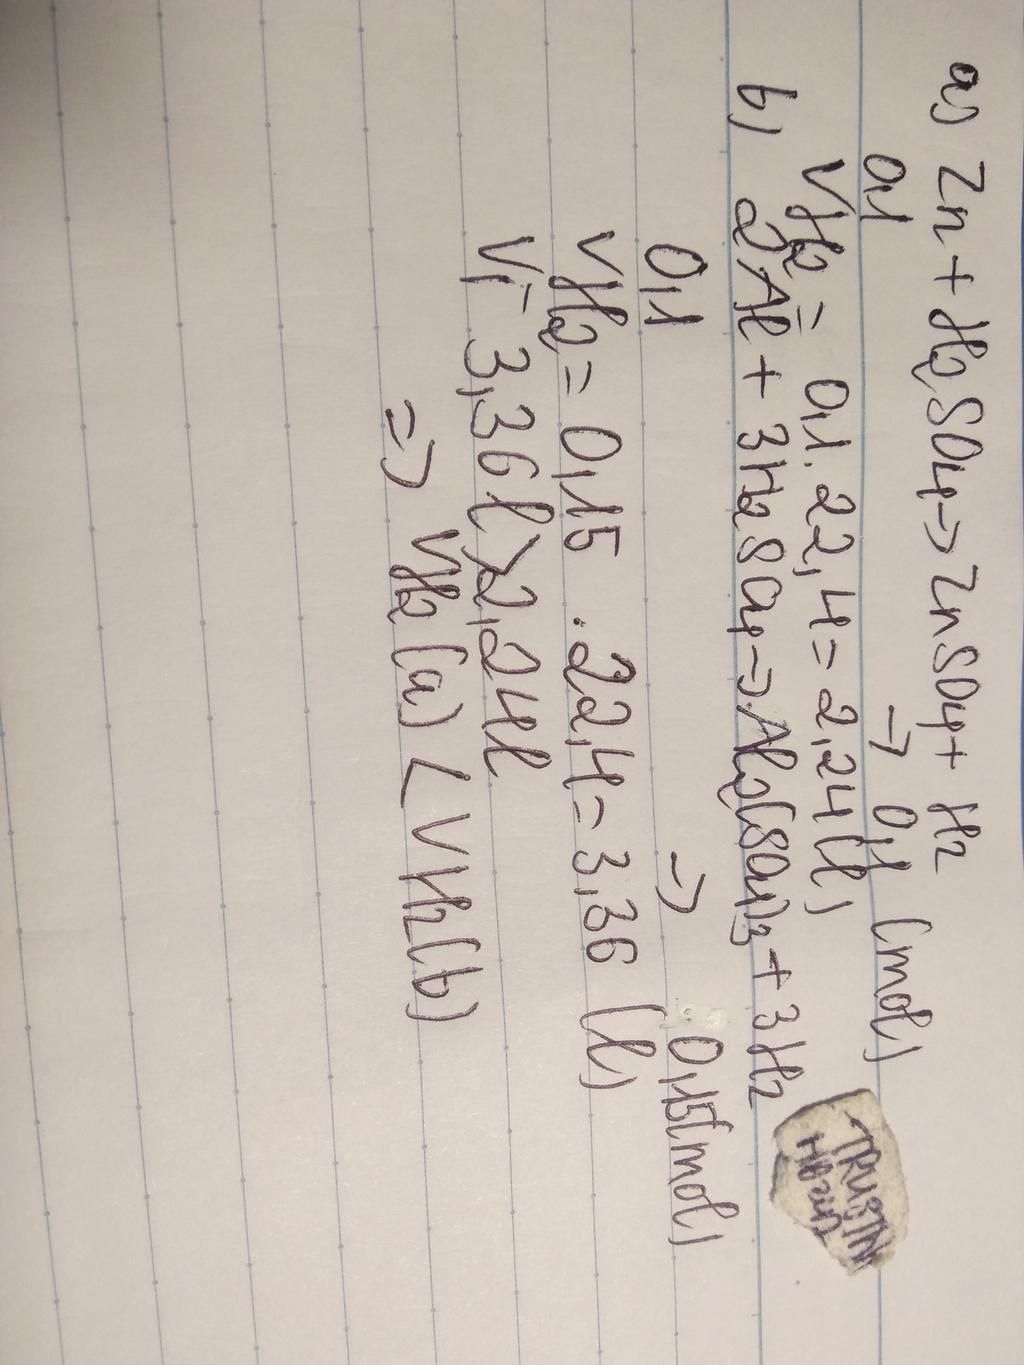 a) Zn + H2SO4 -> ZnSO4 + H2
0,1 -> 0,1 (mol)
VH2 = 0,1.22,4 = 2,24(l)
b) 2Al + 3H2SO4 -> Al2(SO4)3 + 3H2
0,1 -> 0,15(mol)
VH2 = 0,15 .22,4 = 3,36 (l)
Vì 3,36l > 2,24l
=> VH2 (a) < VH2 (b)